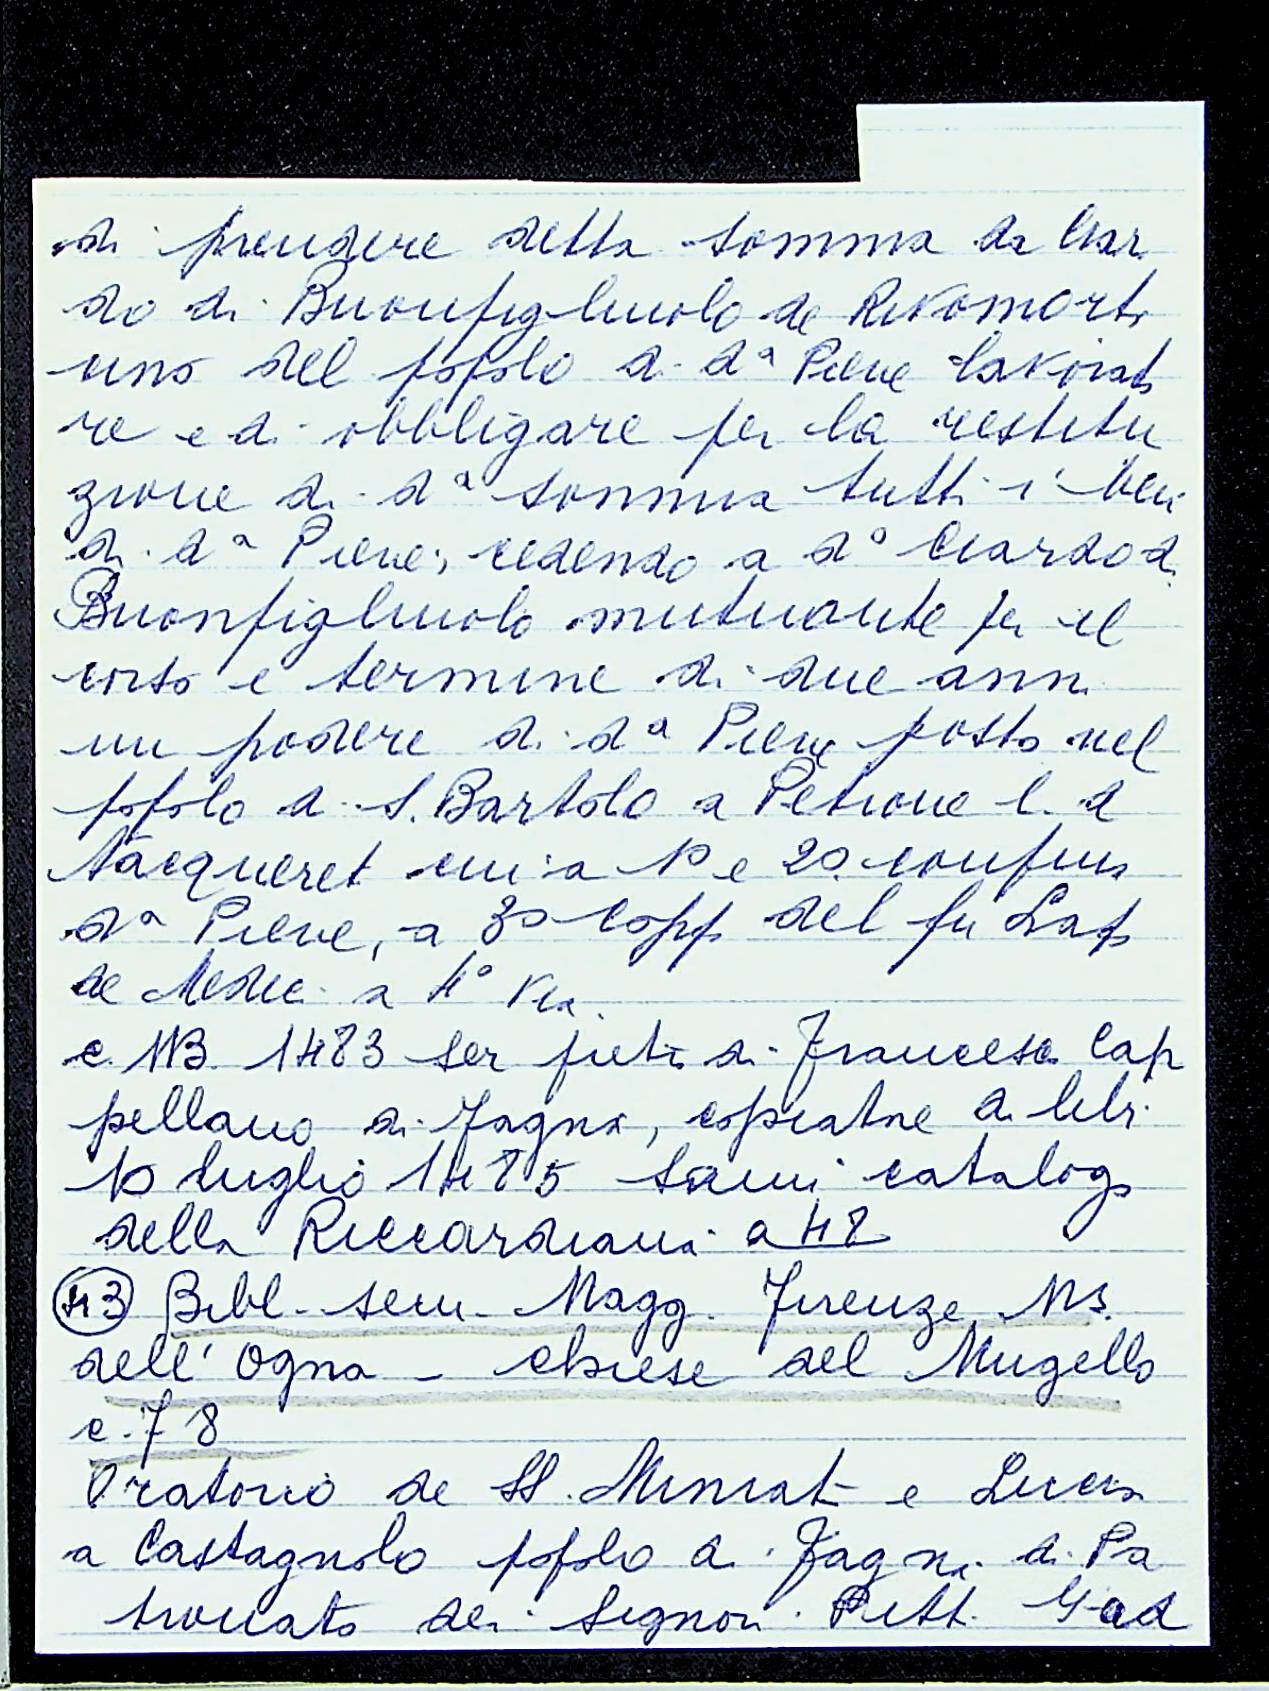 di prendere detta somma da Ciar
do di Buonfigliuolo de Rivomorti
uno del popolo di dª Pieve lavorato
re e di obbligare per la restitu
zione di dª somma tutti i beni
di dª Pieve, cedendo a dº Ciardo di
Buonfigliuolo mutuante per il
corso e termine di due anni
un podere di dª Pieve posto nel
popolo di S. Bartolo a Petrone l. d
cui a 1º e 2º confini
dª Pieve, a 3º Copp del fu Lapo
de Medici a 4º via.
c. 113. 1483 ser di Francesco Cap
pellano di Fagna, copiatore di libri
10 luglio 1485 Sami catalogo
della Riccardiana a 48
(43) Bibl. sem. Magg. Firenze Ms.
dell'Ogna - chiese del Mugello
c. 78
Oratorio de SS. Miniato e Lucia
a Castagnolo popolo di Fagna di Pa
tronato dei Signori Pitti Gad